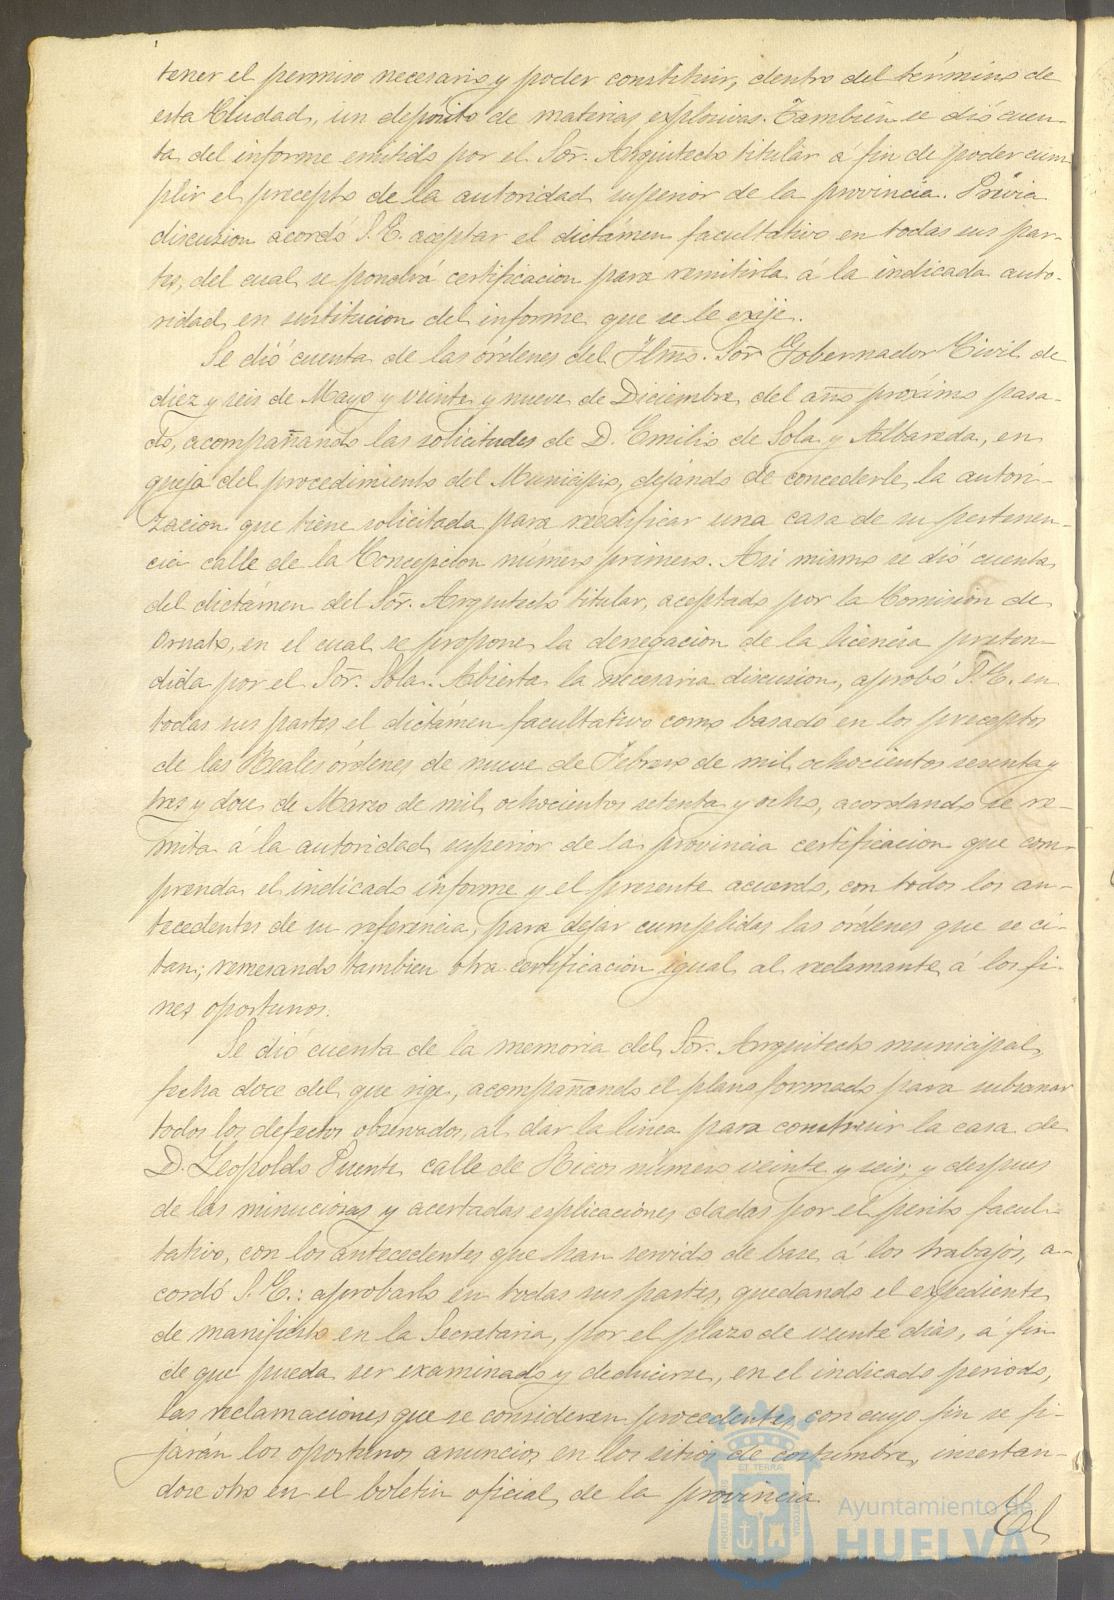 tener el permiso necesario y poder constituir, dentro del término de
esta Ciudad, un deposito de materias explosivas. Tambien se dió cuen-
ta del informe emitido por el Sor. Arquitecto titular á fin de poder cum-
plir el precepto de la autoridad superior de la provincia. Prévia
discusion acordó S. E. aceptar el dictámen facultativo en todas sus par-
tes, del cual se pondrá certificacion para remitirla á la indicada auto-
ridad en sustitucion del informe que se le exije.
Se dió cuenta de las órdenes del Iltmo. Sor. Gobernador Civil de
diez y seis de Mayo y veinte y nueve de Diciembre, del año próximo pasa-
do, acompañando las solicitudes de D. Emilio de Sola y Albareda, en
queja del procedimiento del Municipio, dejando de concederle la autori-
zacion que tiene solicitada para reedificar una casa de su pertenen-
cia calle de la Concepcion número primero. Asi mismo se dió cuenta
del dictámen del Sor. Arquitecto titular, aceptado por la Comision de
Ornato, en el cual se propone la denegacion de la licencia preten-
dida por el Sor. Sola. Abierta la necesaria discusion, aprobó S. E. en
todas sus partes el dictámen facultativo como basado en los preceptos
de las Reales órdenes de nueve de Febrero de mil ochocientos sesenta y
tres y doce de Marzo de mil ochocientos setenta y ocho, acordando se re-
mita á la autoridad superior de la provincia certificacion que com-
prenda el indicado informe y el presente acuerdo, con todos los an-
tecedentes de su referencia, para dejar cumplidas las órdenes que se ci-
tan; remesando tambien otra certificación igual al reclamante á los fi-
nes oportunos.
Se dió cuenta de la memoria del Sor. Arquitecto municipal
fecha doce del que rige, acompañando el plano formado para subsanar
todos los defectos observados al dar la linea para construir la casa de
D. Leopoldo Puente calle de Ricos número veinte y seis; y despues
de las minuciosas y acertadas esplicaciones dadas por el perito facul-
tativo, con los antecedentes que han servido de base á los trabajos, a-
cordó S. E.: aprobarlo en todas sus partes, quedando el expediente
de manifiesto en la Secretaria, por el plazo de veinte dias, á fin
de que pueda ser examinado y deducirse, en el indicado periodo,
las reclamaciones que se consideren procedentes, con cuyo fin se fi-
jarán los oportunos anuncios en los sitios de costumbre, insertan-
dose otro en el boletin oficial de la provincia.
El
Ayuntamiento de
HUELVA